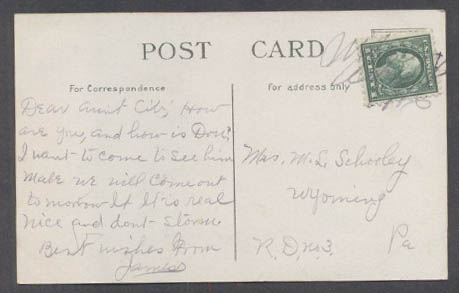 POST CARD
For Correspondence
For address only
Dear Aunt City, How
are you, and how is Don?
I want to come to see him
we will come out
to morrow if it is real
nice and dont storm
Best wishes from
James
Mrs. M. L. Schooley
Wyoming
R. D. No. 3. Pa